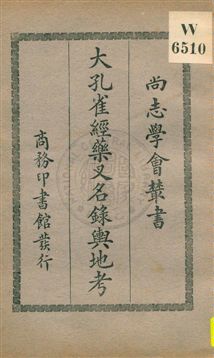 W
6510
尚志學會叢書
大孔雀經藥叉名錄輿地考
商務印書館發行